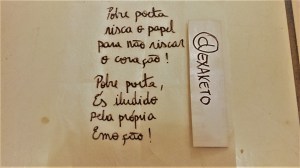 Pobre poeta
risca o papel
para não riscar
o coração!
Pobre poeta,
És iludido
pela própria
Emoção!
@EXAKETO